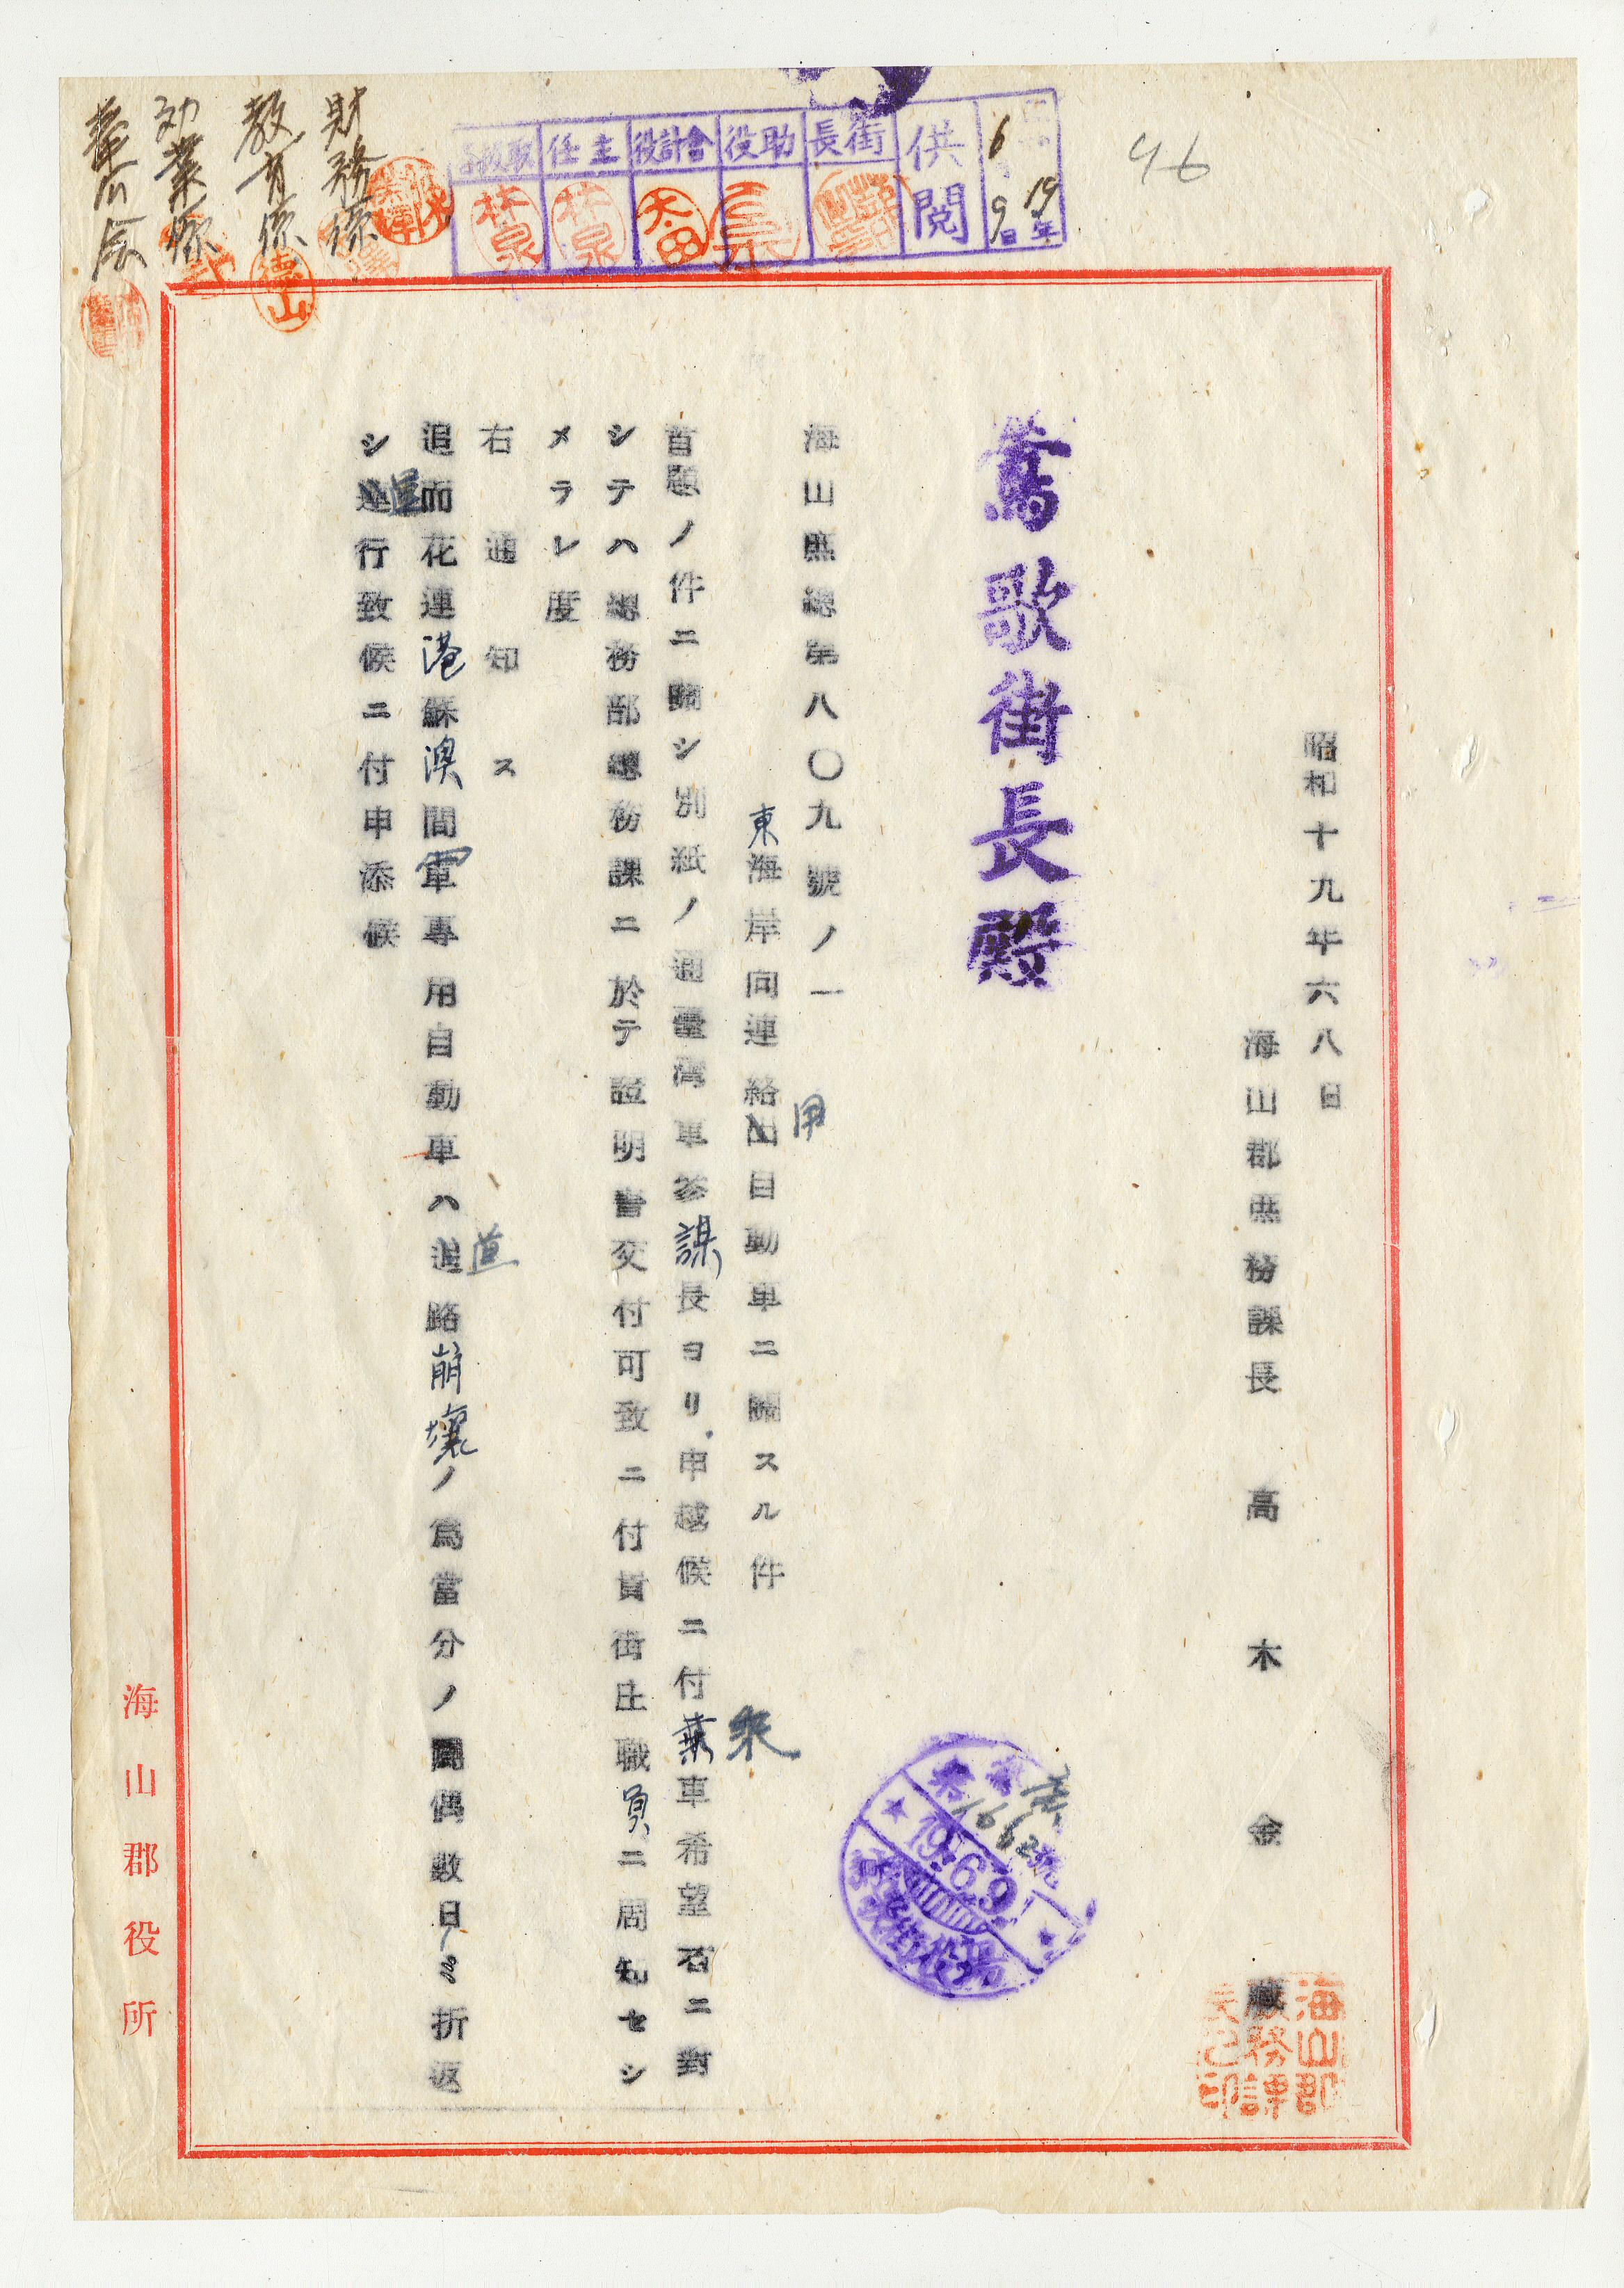 46
供閲
19年
6
9日
街長
助役
會計役
主任
財務係
教育係
昭和十九年六八日
海山郡庶務課長 高木金藏
鶯歌街長殿
海山庶總第八〇九號ノ一
東海岸同連絡用自動車ニ關スル件
首題ノ件ニ關シ別紙ノ通臺灣軍參謀長ヨリ申越候ニ付乘車希望者ニ對
シテハ總務部總務課ニ於テ證明書交付可致ニ付貴街庄職員ニ周知セシ
メラレ度
右通知ス
追而花連港蘇澳間軍專用自動車ハ道路崩壞ノ爲當分ノ間偶數日ノミ折返
シ運行致候ニ付申添候
19.6.9
鶯歌街役場
海山郡庶務課長之印
海山郡役所